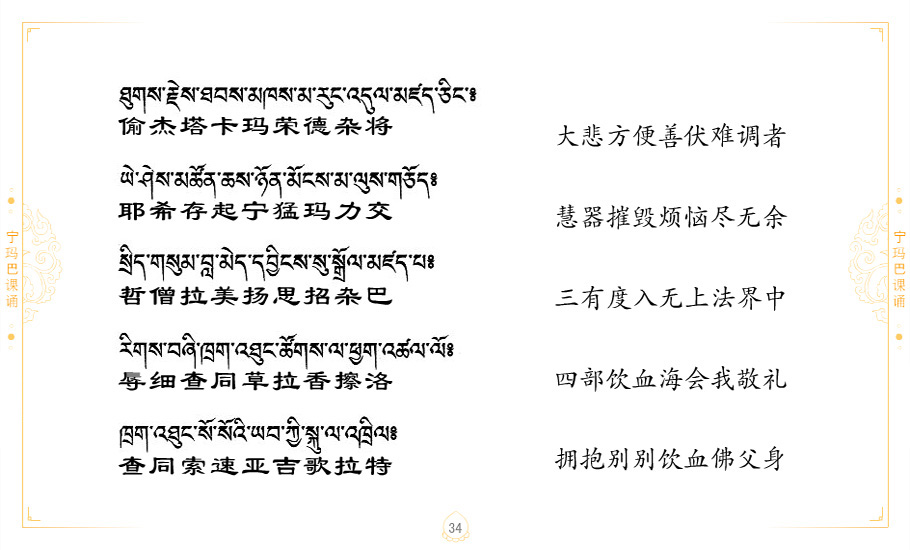 ཐུགས་རྗེས་ཐབས་མཁས་མ་རུང་འདུལ་མཛད་ཅིང་༔
偷杰塔卡玛荣德杂将
大悲方便善伏难调者
ཡེ་ཤེས་མཚོན་ཆས་ཉོན་མོངས་མ་ལུས་གཅོད༔
耶希存起宁猛玛力交
慧器摧毁烦恼尽无余
སྲིད་གསུམ་བླ་མེད་དབྱིངས་སུ་སྒྲོལ་མཛད་པ༔
哲僧拉美扬思招杂巴
三有度入无上法界中
རིགས་བཞི་ཁྲག་འཐུང་ཚོགས་ལ་ཕྱག་འཚལ་ལོ༔
辱细查同草拉香擦洛
四部饮血海会我敬礼
ཁྲག་འཐུང་སོ་སོའི་ཡབ་ཀྱི་སྐུ་ལ་འཁྲིལ༔
查同索速亚吉歌拉特
拥抱别别饮血佛父身
宁玛巴课诵
宁玛巴课诵
34